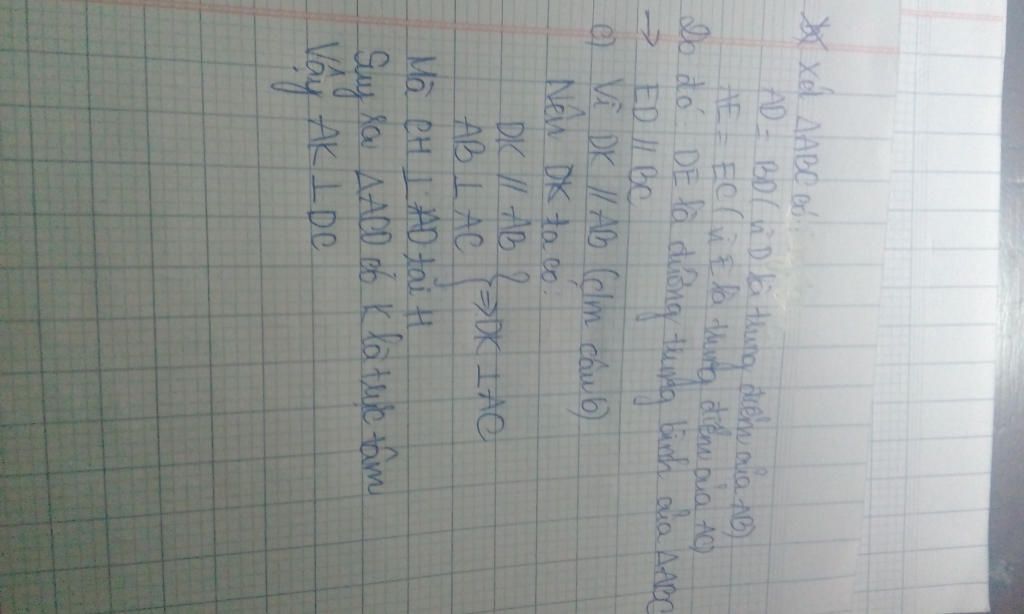 Xét ΔABC có:
AD = BD (vì D là trung điểm của AB)
AE = EC (vì E là trung điểm của AC)
Do đó: DE là đường trung bình của ΔABC
→ ED // BC
c) Vì DK // AB (c/m câu b)
Nên DK ta có:
DK // AB
AB ⊥ AC } ⇒ DK ⊥ AC
Mà CH ⊥ AD tại H
Suy ra ΔACD có K là trực tâm
Vậy AK ⊥ DC